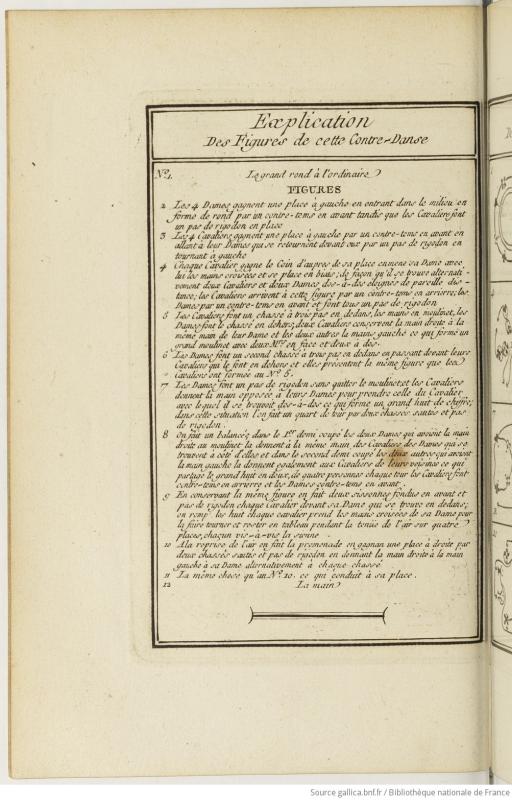 Explication
Des Figures de cette Contre-Danse
N.º 1. Le grand rond à l'ordinaire
FIGURES
2 Les 4 Dames gagnent une place à gauche en entrant dans le milieu en
forme de rond par un contre-tems en avant tandis que les Cavaliers font
un pas de rigodon en place
3 Les 4 Cavaliers gagnent une place à gauche par un contre-tems en avant en
allant à leur Dames qui se retournent devant eux par un pas de rigodon en
tournant à gauche
4 Chaque Cavalier gagne le Coin d'aupres de sa place en mene sa Dame avec
lui les mains croisées et se place en biais; de façon qu'il se trouve alternati-
vement deux Cavaliers et deux Dames dos-à-dos eloignés de pareille dis-
tance; les Cavaliers arrivent à cette figure par un contre-tems en arriere; les
Dames par un contre-tems en avant et font tous un pas de rigodon
5 Les Cavaliers font un chassé à trois pas en dedans, les mains en moulinet, les
Dames font le chassé en dehors; deux Cavaliers conservent la main droite à la
même main de leur Dame et les deux autres la main gauche ce qui forme un
grand moulinet avec deux M.rs en face et deux à dos.
6 Les Dames font un second chassé à trois pas en dedans en passant devant leurs
Cavaliers qui le font en dehors et elles présentent la même figure que les
Cavaliers ont formés au N.º 5.
7 Les Dames font un pas de rigodon sans quitter le moulinet et les Cavaliers
donnent la main opposée à leurs Dames pour prendre celle du Cavalier
avec lequel il se trouvoit dos-à-dos ce qui forme un grand huit de chifre;
dans cette situation l'on fait un quart de tour par deux chassés sautés et pas
de rigodon.
8 On fait un balancée, dans le 1.er demi coupé les deux Dames qui avoient la main
droite au moulinet la donnent à la même main des Cavaliers des Dames qui se
trouvent à côté d'elles et dans le second demi coupé les deux autres qui avoient
la main gauche la donnent egalement aux Cavaliers de leurs voisines ce qui
partage le grand huit en deux, de quatre personnes chaque tous les Cavaliers font
contre-tems en arriere et les Dames contre-tems en avant.
9 En conservant la même figure on fait deux sissonnes fondus en avant et
pas de rigodon chaque Cavalier devant sa Dame qui se trouve en dedans;
on romp' les huit chaque cavalier prend les mains croisées de sa Dame pour
la faire tourner et rester en tableau pendant la tenüe de l'air sur quatre
places, chacun vis-à-vis la sienne.
10 A la reprise de l'air on fait la promenade en gagnan une place à droite par
deux chassés sautés et pas de rigodon en donnant la main droite à la main
gauche à sa Dame alternativement à chaque chassé
11 La même chose qu'au N.º 10. ce qui conduit à sa place.
12 La main
Source gallica.bnf.fr / Bibliothèque nationale de France